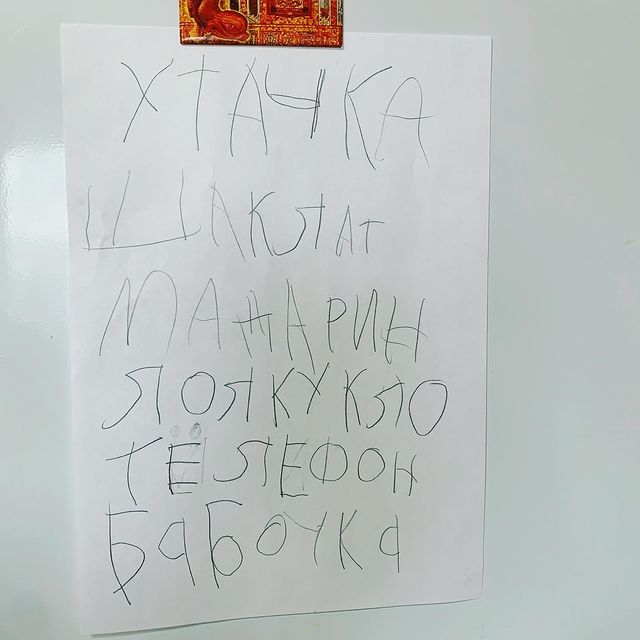 ХТАЧКА
ШАКЛАТ
МАЖАРИН
ЯОЯКУКЛО
ТЁЛЕФОН
БаБОЧКа